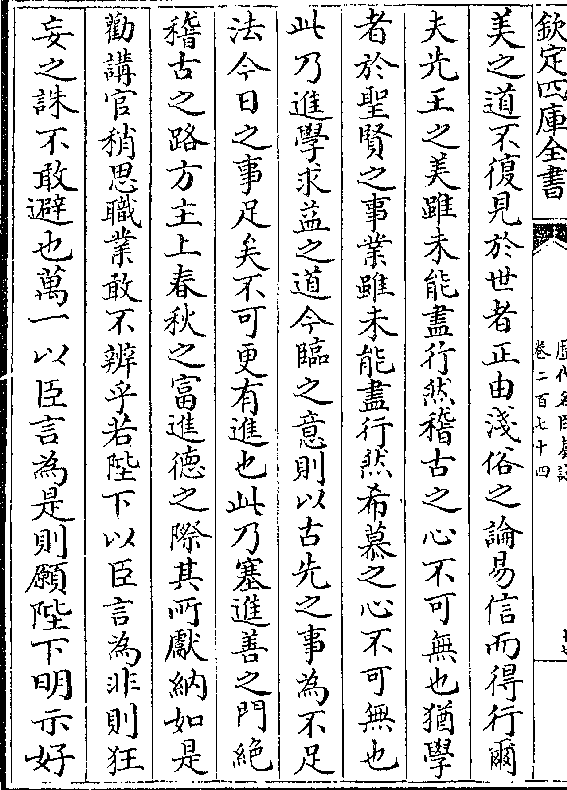 欽定四庫全書
卷二百七十四
美之道不復見於世者正由淺俗之論易信而得行爾
夫先王之美雖未能盡行然稽古之心不可無也猶學
者於聖賢之事業雖未能盡行然希慕之心不可無也
此乃進學求益之道今臨之意則以古先之事為不足
法今日之事足矣不可更有進也此乃塞進善之門絕
稽古之路方主上春秋之富進德之際其所獻納如是
勸講官稍思職業敢不辨乎若陛下以臣言為非則狂
妄之誅不敢避也萬一以臣言為是則願陛下明示好